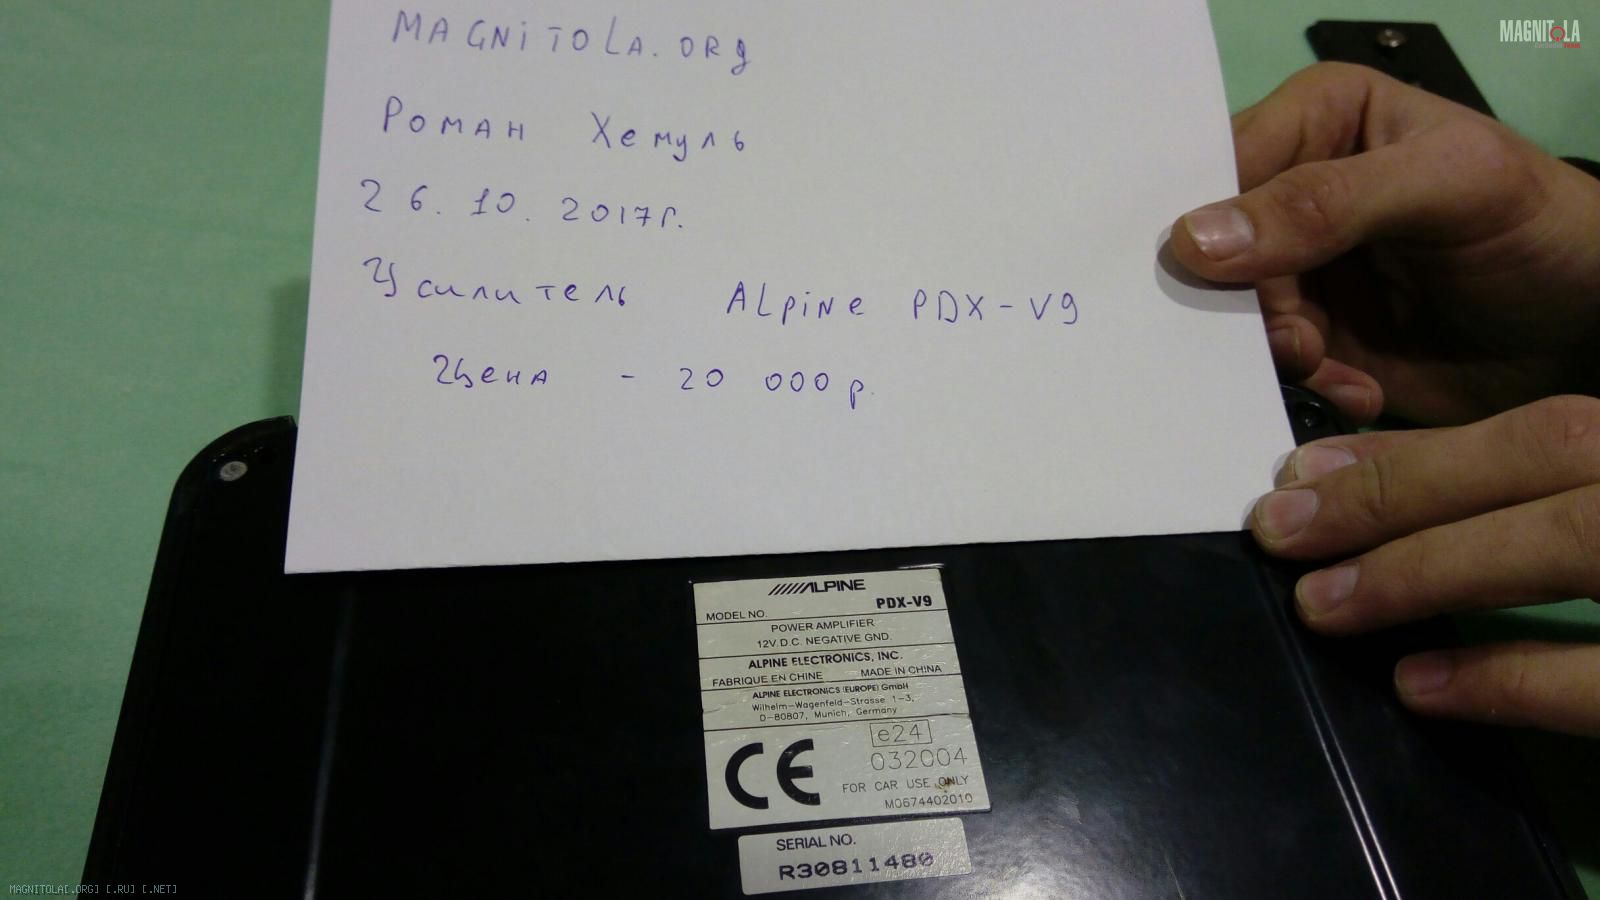 MAGNITOLA
CarAudio Team
MAGNiTOLA.ORg
Роман Хемуль
26.10.2017г.
Усилитель ALpiNe PDX-V9
Цена - 20 000р.
ALPINE
MODEL NO. PDX-V9
POWER AMPLIFIER
12V D.C. NEGATIVE GND.
ALPINE ELECTRONICS, INC.
FABRIQUE EN CHINE MADE IN CHINA
ALPINE ELECTRONICS (EUROPE) GmbH
Wilhelm-Wagenfeld-Strasse 1-3,
D-80807, Munich, Germany
CE e24
032004
FOR CAR USE ONLY
M0674402010
SERIAL NO.
R30811480
MAGNITOLA[.ORG] [.RU] [.NET]